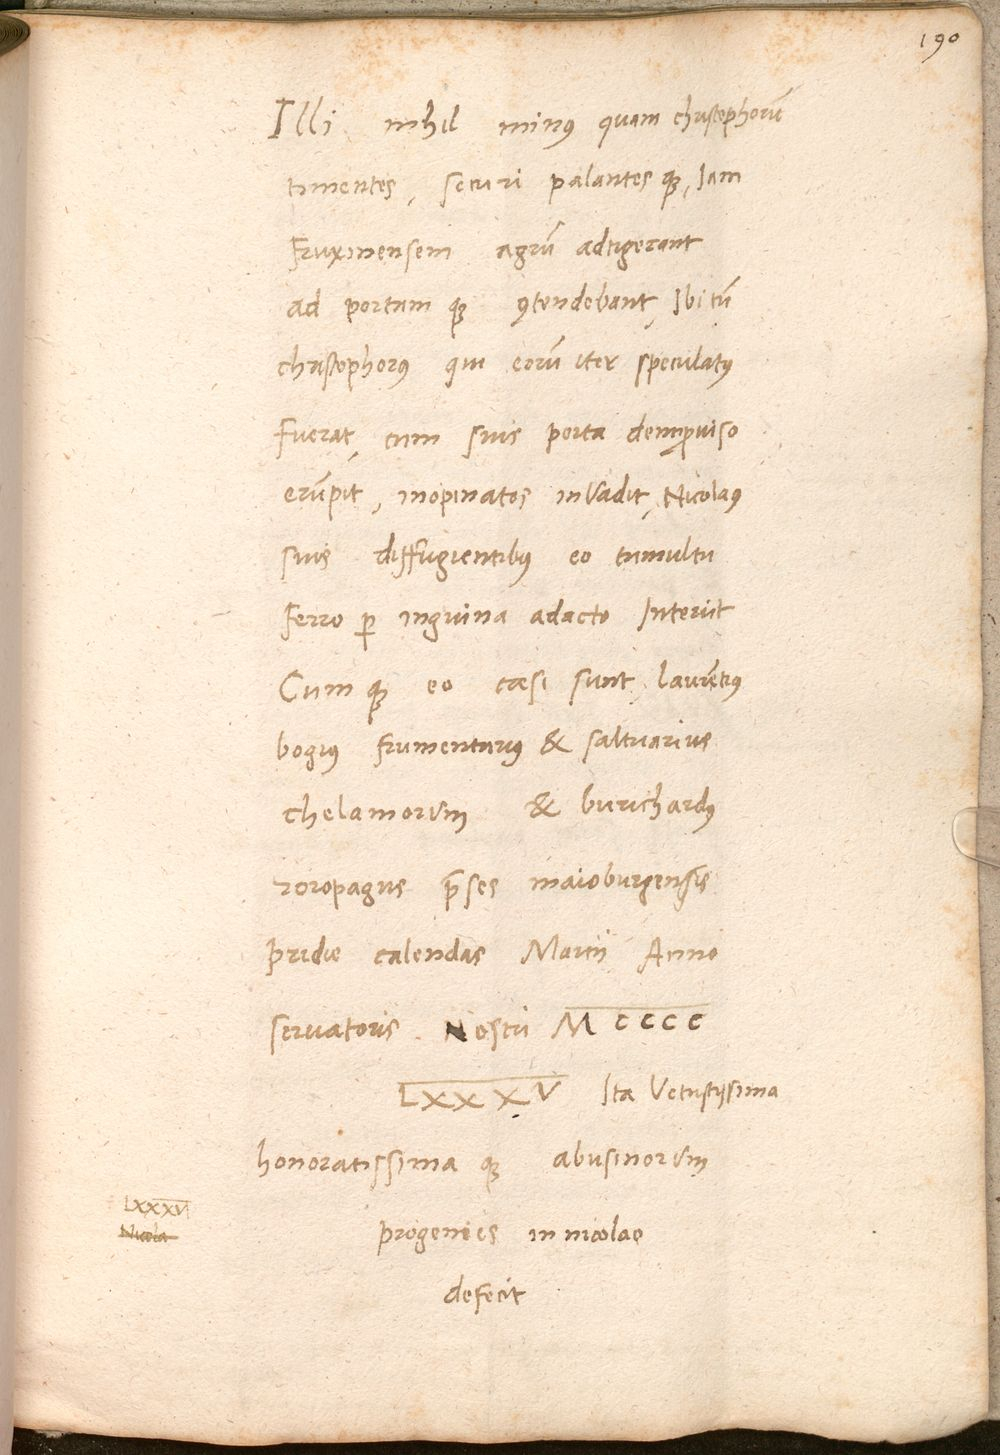 190
Illi nihil minꝰ quam christophorū
timentes, securi palantes qꝫ, Iam
fruxinensem agrū adtigerant
ad portam qꝫ ꝯtendebant, Ibi tū
christophorꝰ qui eorū iter speculatꝰ
fuerat, cum suis porta demꝓuiso
erūpit, inopinatos inVadit, Nicolaꝰ
suis diffugientibꝰ eo tumultu
ferro ꝑ inguina adacto Interiit
Cum qꝫ eo cæsi sunt, laurētiꝰ
bogiꝰ frumentariꝰ & saltuarius
chelamorum & burichardꝰ
roropagus p̄ses maioburgensis
pridie calendas Martij Anno
seruatoris Nostri M cccc
LXXXV Ita Vetustissima
honoratissima qꝫ abusinorum
LXXXVI
Nicola
progenies in nicolao
defecit